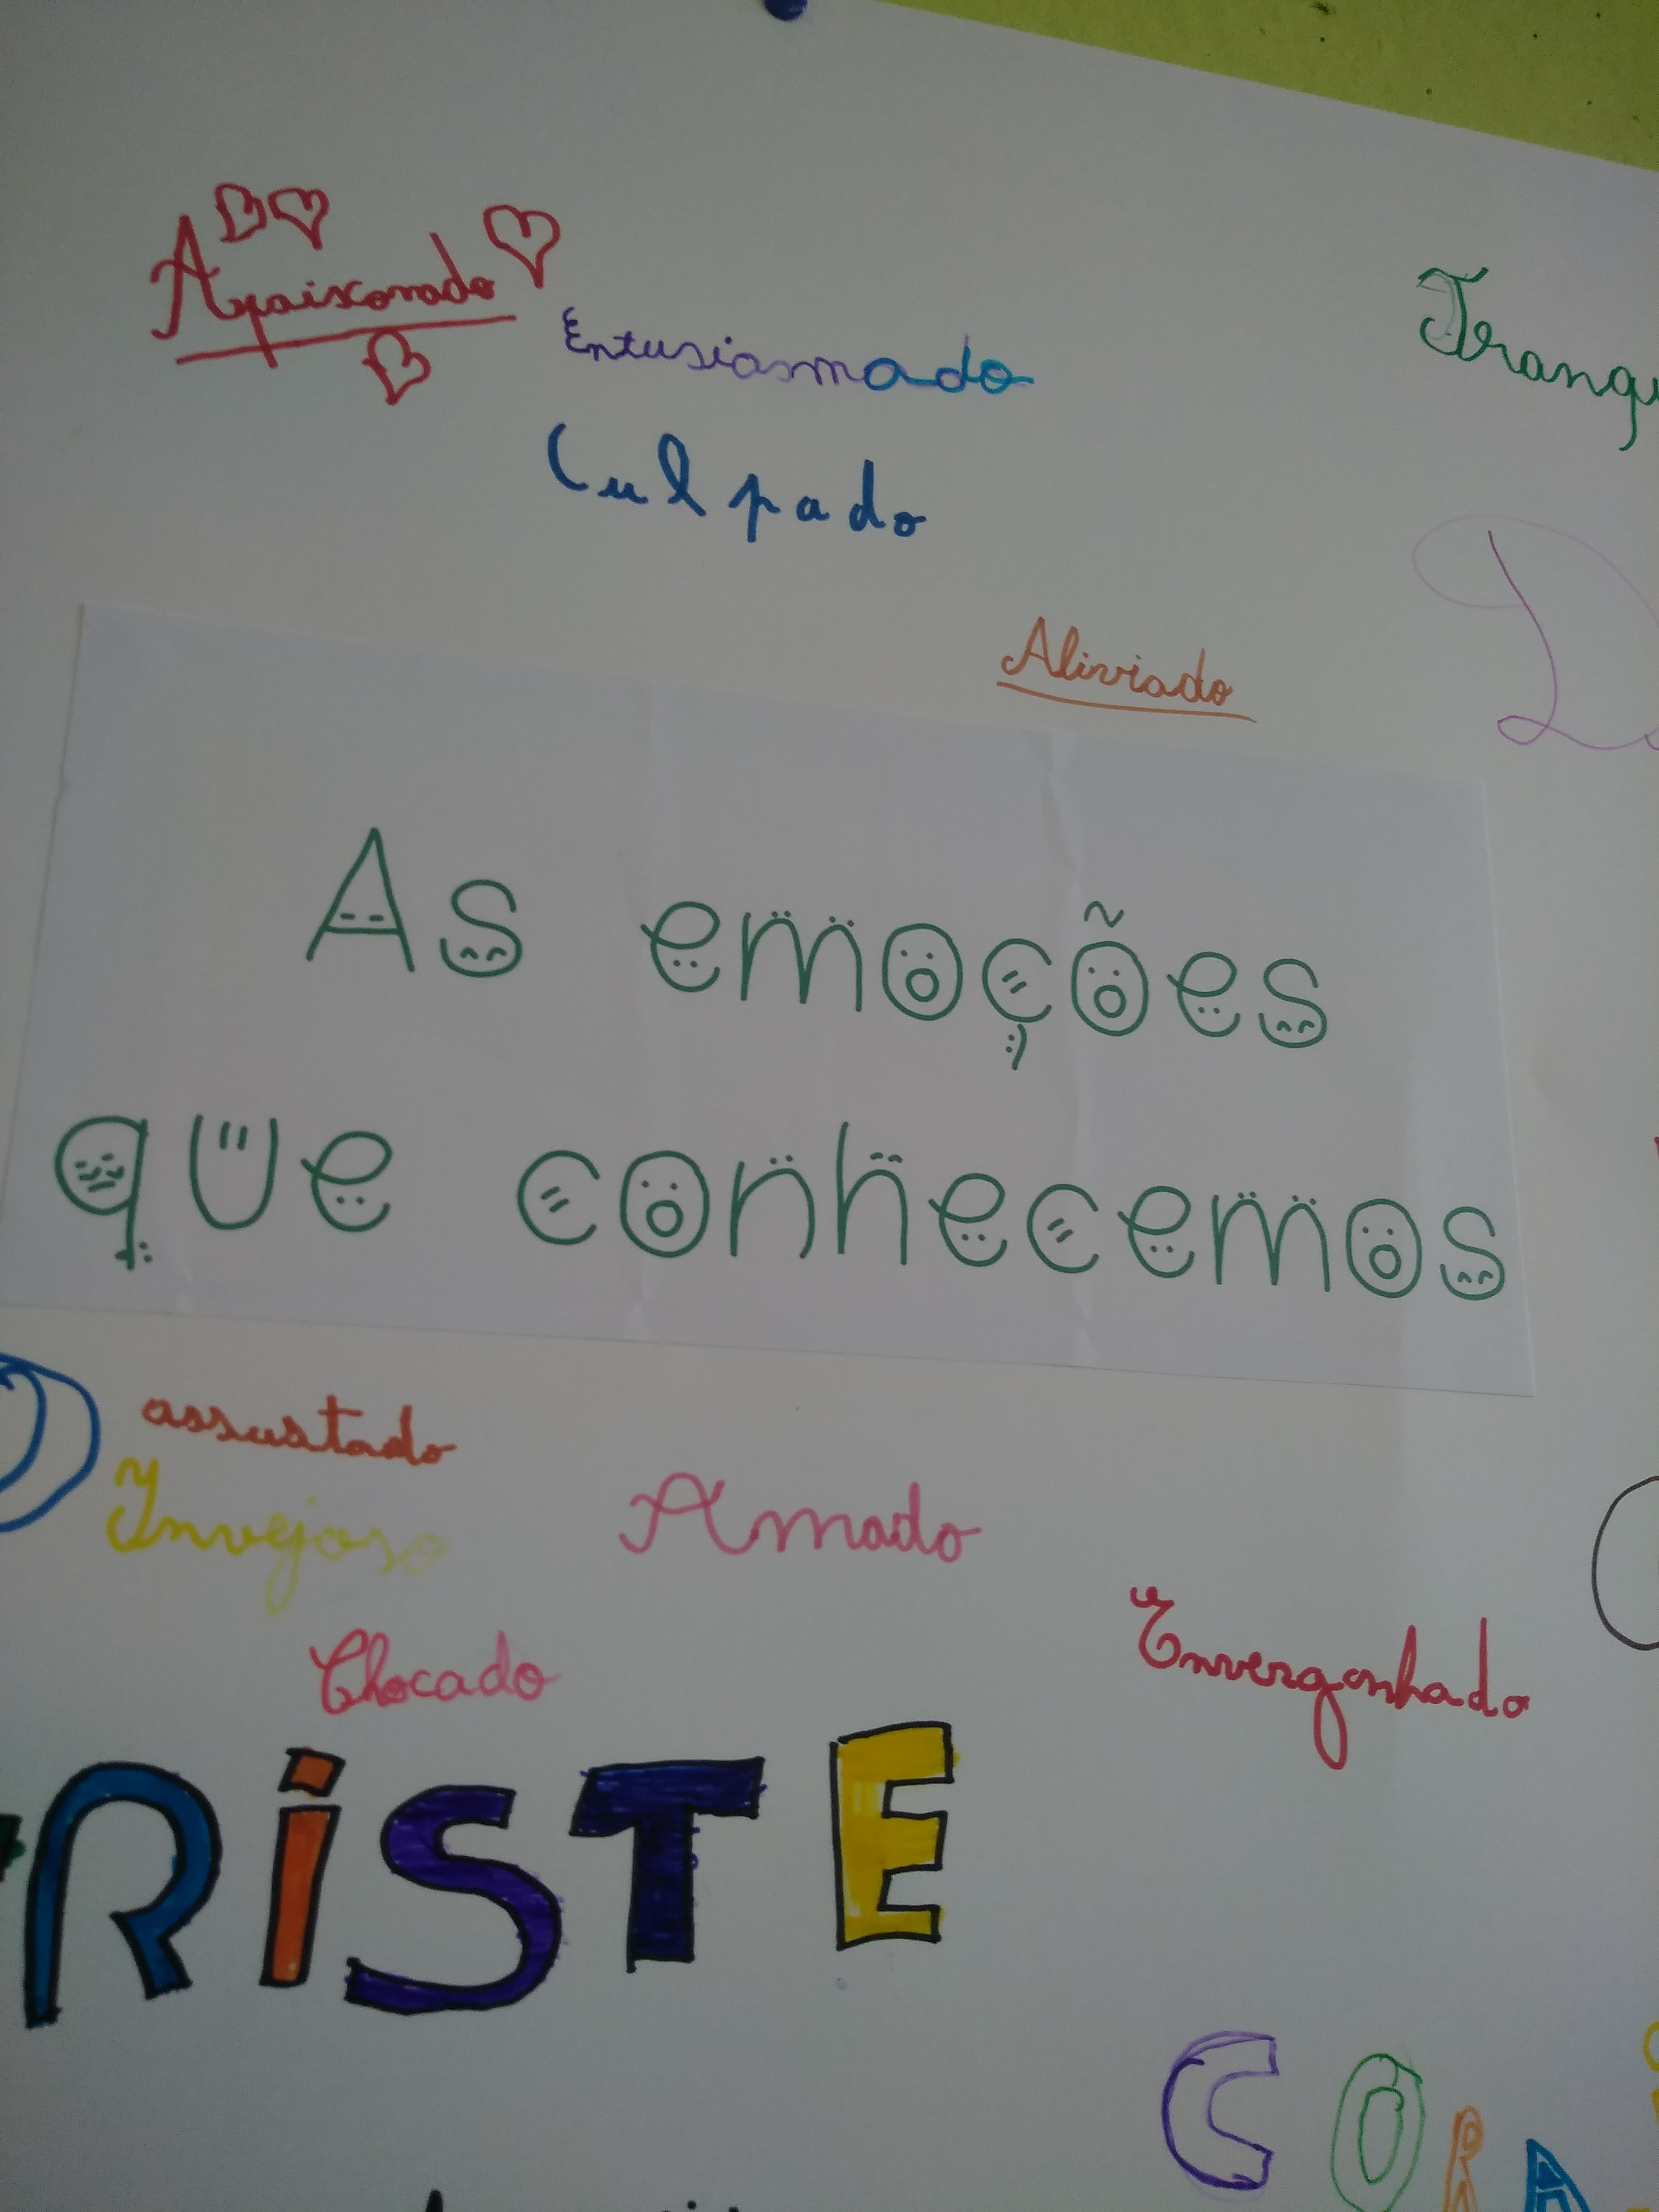 Apaixonado
Entusiasmado
Tranqu
Culpado
D
Aliviado
As emoções
que conhecemos
assustado
Invejoso
Amado
Chocado
Envergonhado
RiSTE
CORA